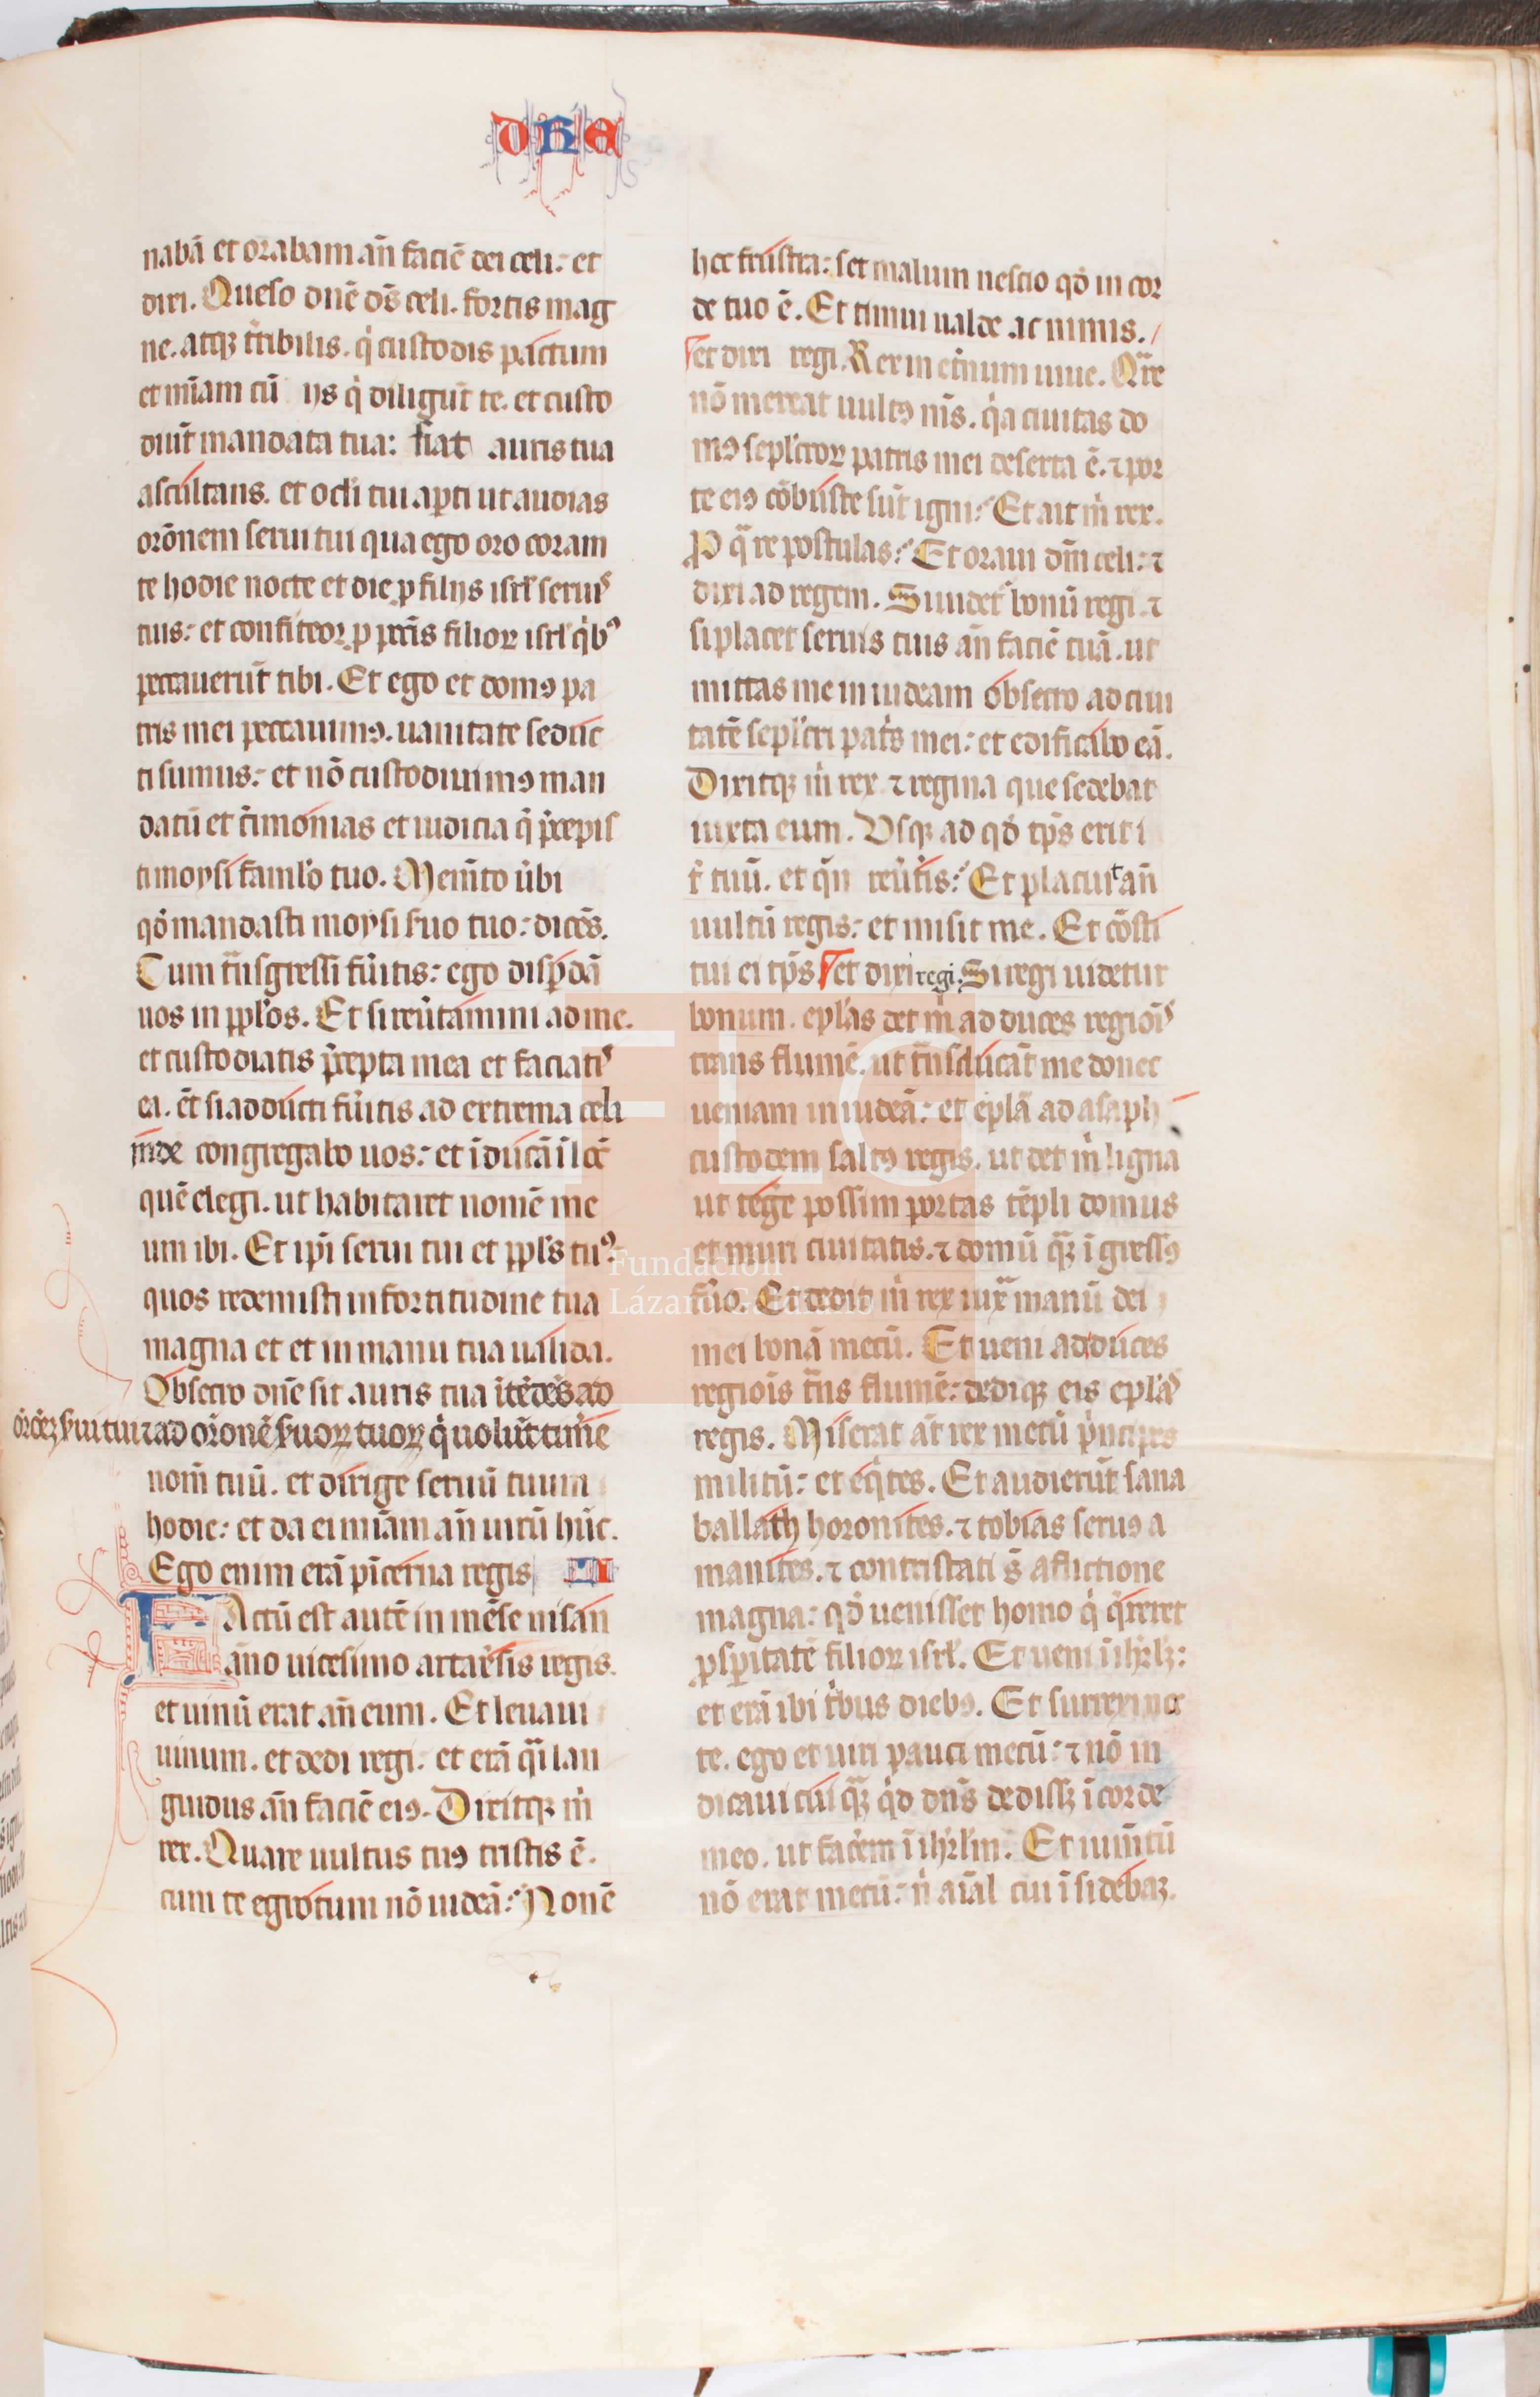 DRA
nabā et orabam añ faciē dei celi: et
dixi. Queso dn̄e ds̄ celi. fortis mag
ne. atq; t̄ribilis. q̇ custodis pactum
et m̄iam cū ijs q̇ diligūt te. et custo
diūt mandata tua: fiat auris tua
ascultans. et ocl̄i tui aꝑti ut audias
orōnem serui tui qua ego oro coram
te hodie nocte et die ꝓ filijs isrl̄ seruis
tuis: et confiteor ꝓ pcc̄is filioꝝ isrl̄ q̇bꝰ
peccauerūt tibi. Et ego et domꝰ pa
tris mei peccauimꝰ. uanitate seduc
ti sumus: et nō custodiuimꝰ man
datū et c̄imonias et iudicia q̄ p̄cepis
ti moysi famlo tuo. Mem̄to ūbi
qd̄ mandasti moysi s̄uo tuo: dicēs.
Cum t̄nsgressi fūitis: ego disꝑdā
uos in ppl̄os. Et si reūtamini ad me.
et custodiatis p̄cepta mea et faciatis
ea. ēt si adducti fūitis ad extrema celi
inde congregabo uos: et īducā ī locū
quē elegi. ut habitaret nomē me
um ibi. Et ip̄i serui tui et ppl̄s tuꝰ
quos redemisti in fortitudine tua
magna et et in manu tua ualida.
Obsecro dn̄e sit auris tua ītēdēs ad
or̄oēz s̄ui tui ⁊ ad or̄onē s̄uoꝝ tuoꝝ q̇ uolūt timē
nom̄ tuū. et dirige seruū tuum
hodie: et da ei m̄iam añ uirū hūc.
Ego enim erā pīcerna regis II
FActū est autē in mēse nisan
āno uicesimo artaxsis regis.
et uinū erat añ eum. Et leuaui
uinum. et dedi regi: et erā q̄i lan
guidus añ faciē eiꝰ. Dixitq; m̄
rex. Quare uultus tuꝰ tristis ē.
cum te egrotum nō uideā: Non ē
hec frustra: set malum nescio qd̄ in cor
de tuo ē. Et timui ualde ac nimis.
et dixi regi. Rex in et̄num uiue. Qr̄e
nō mereat uultꝰ m̄s. q̇a ciuitas do
mꝰ sepl̄croꝝ patris mei deserta ē. ⁊ por
te eiꝰ cōbuste sūt igni: Et ait m̄ rex.
P q̄ re postulas: Et oraui dm̄ celi: ⁊
dixi ad regem. Si uidet̄ bonū regi. ⁊
si placet seruis tuis añ faciē tuā. ut
mittas me in iudeam obsecro ad ciui
tatē sepl̄cri pat̄s mei: et edificabo eā.
Dixitq; m̄ rex ⁊ regina que sedebat
iuxta eum. Usq; ad qd̄ tp̄s erit i
t̄ tuū. et q̄n reūtis: Et placuit añ
uultū regis: et misit me. Et cōsti
tui ei tp̄s et dixi regi. Si regi uidetur
bonum. epl̄as det m̄ ad duces regiōis
trans flumē. ut t̄nsducāt me donec
ueniam in iudeā: et epl̄ā ad asaph
custodem saltꝰ regis. ut det m̄ ligna
ut tegē possim portas tēpli domus
et muri ciuitatis. ⁊ domū q̄; īgressꝰ
fūo. Et dedit m̄ rex iux̄ manū dei
mei bonā mecū. Et ueni ad duces
regiōis t̄ns flumē: dediq; eis epl̄as
regis. Miserat āt rex mecū p̄ncipes
militū: et eq̇tes. Et audierūt sana
ballath horonites. ⁊ tobias seruꝰ a
manites. ⁊ contristati s̄ aflictione
magna: qd̄ uenisset homo q̇ q̄reret
ꝓsꝑitatē filioꝝ isrl̄. Et ueni ī ihrl̄;:
et erā ibi t̄bus diebꝰ. Et surrexi noc
te. ego et uiri pauci mecū: ⁊ nō in
dicaui cuiq̄; q̇d dn̄s dediss; ī corde
meo. ut facēm ī ihrl̄m. Et ium̄tū
nō erat mecū: n̄ aīal cui īsideba;.
Fundación
Lázaro Galdiano
FLG